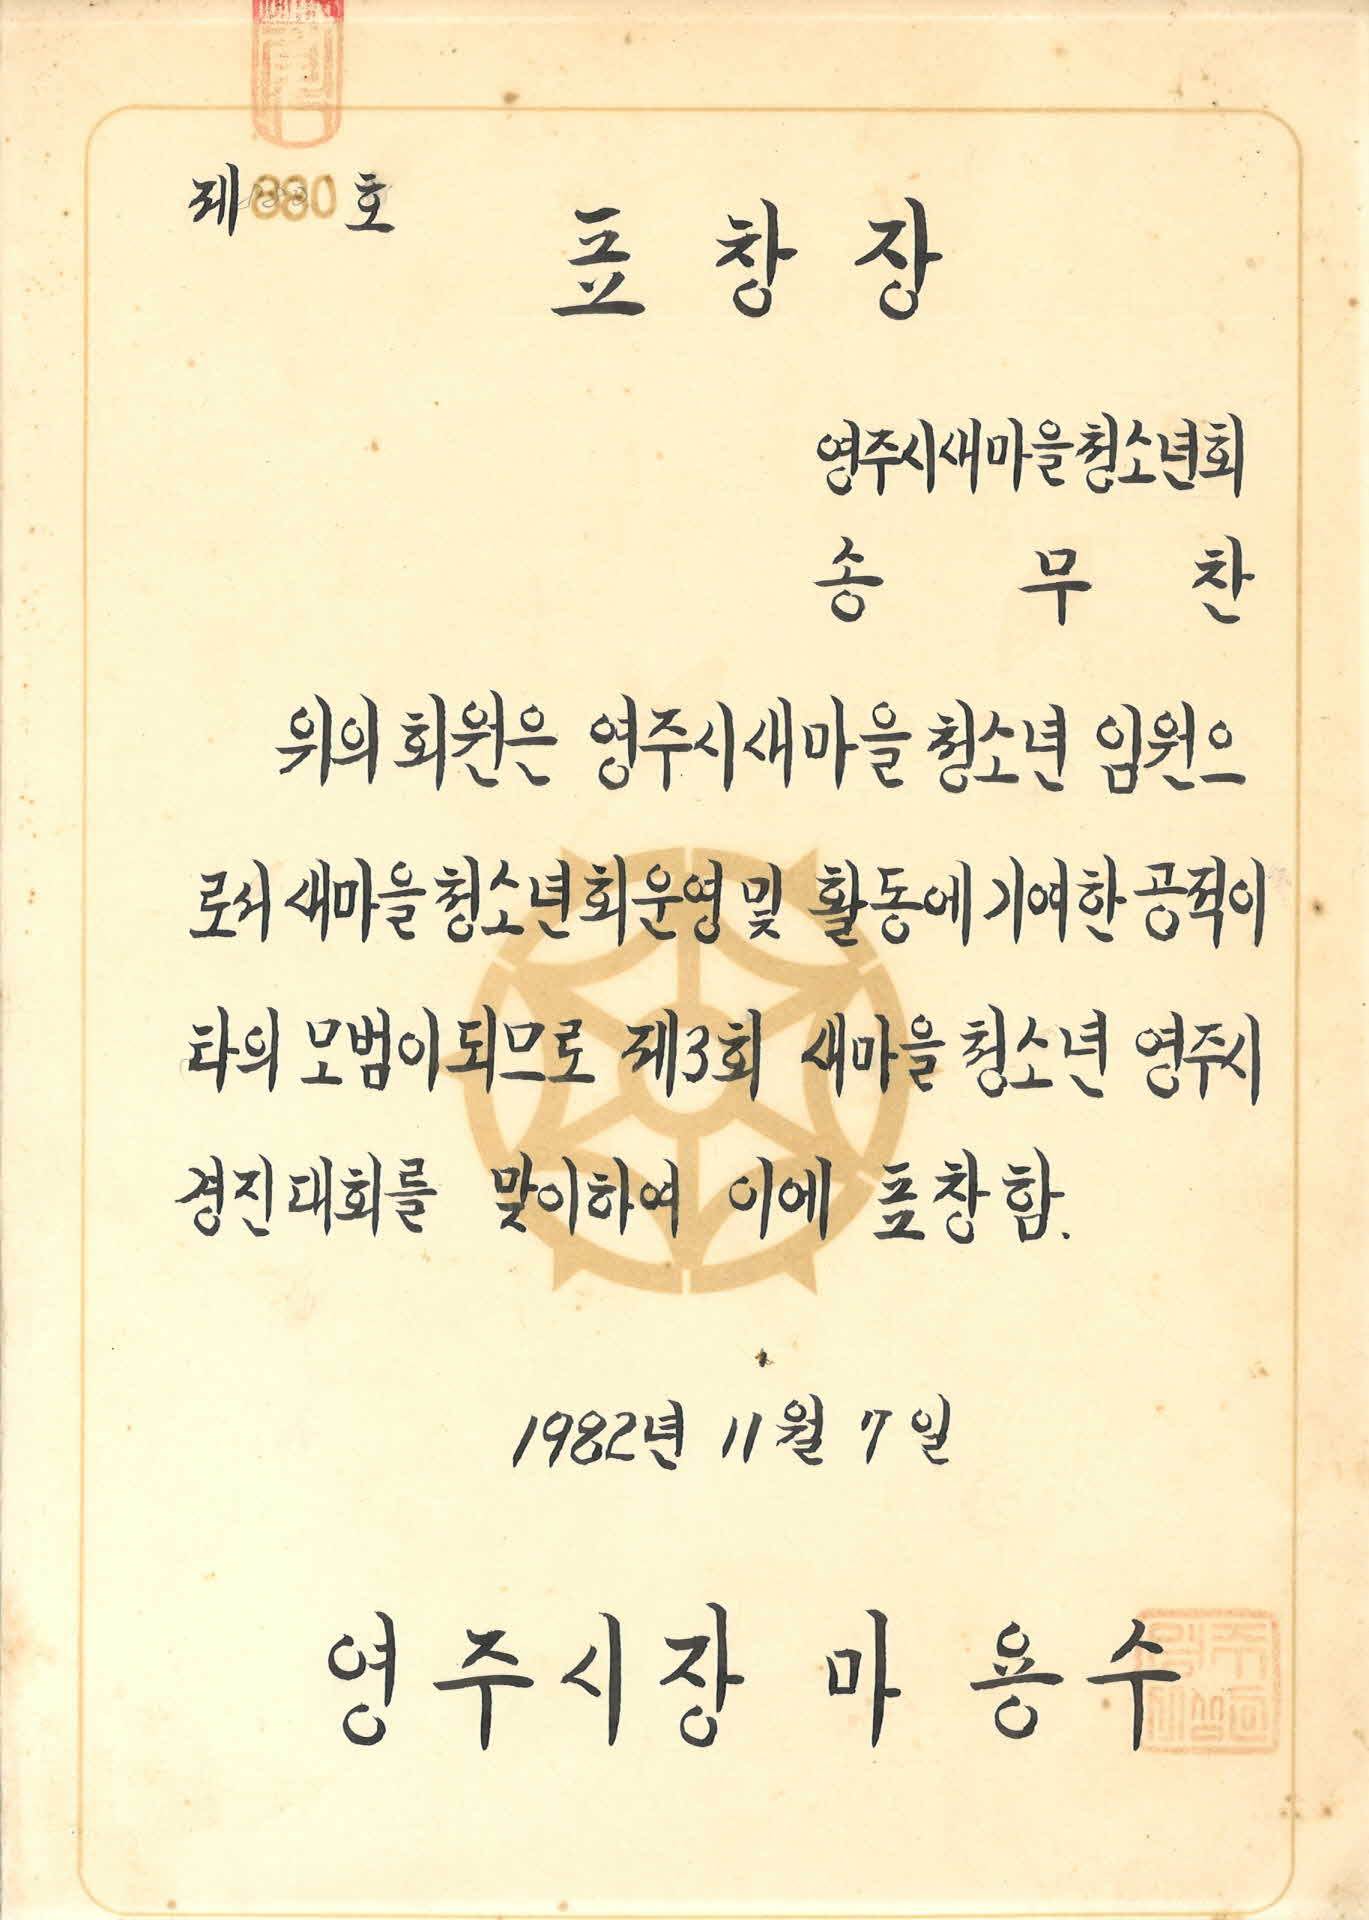 제880호
표창장
영주시새마을청소년회
송무찬
위의 회원은 영주시새마을청소년 임원으
로서 새마을청소년회운영및 활동에 기여한 공적이
타의 모범이 되므로 제3회 새마을청소년 영주시
경진대회를 맞이하여 이에 표창함.
1982년 11월 7일
영주시장 마용수